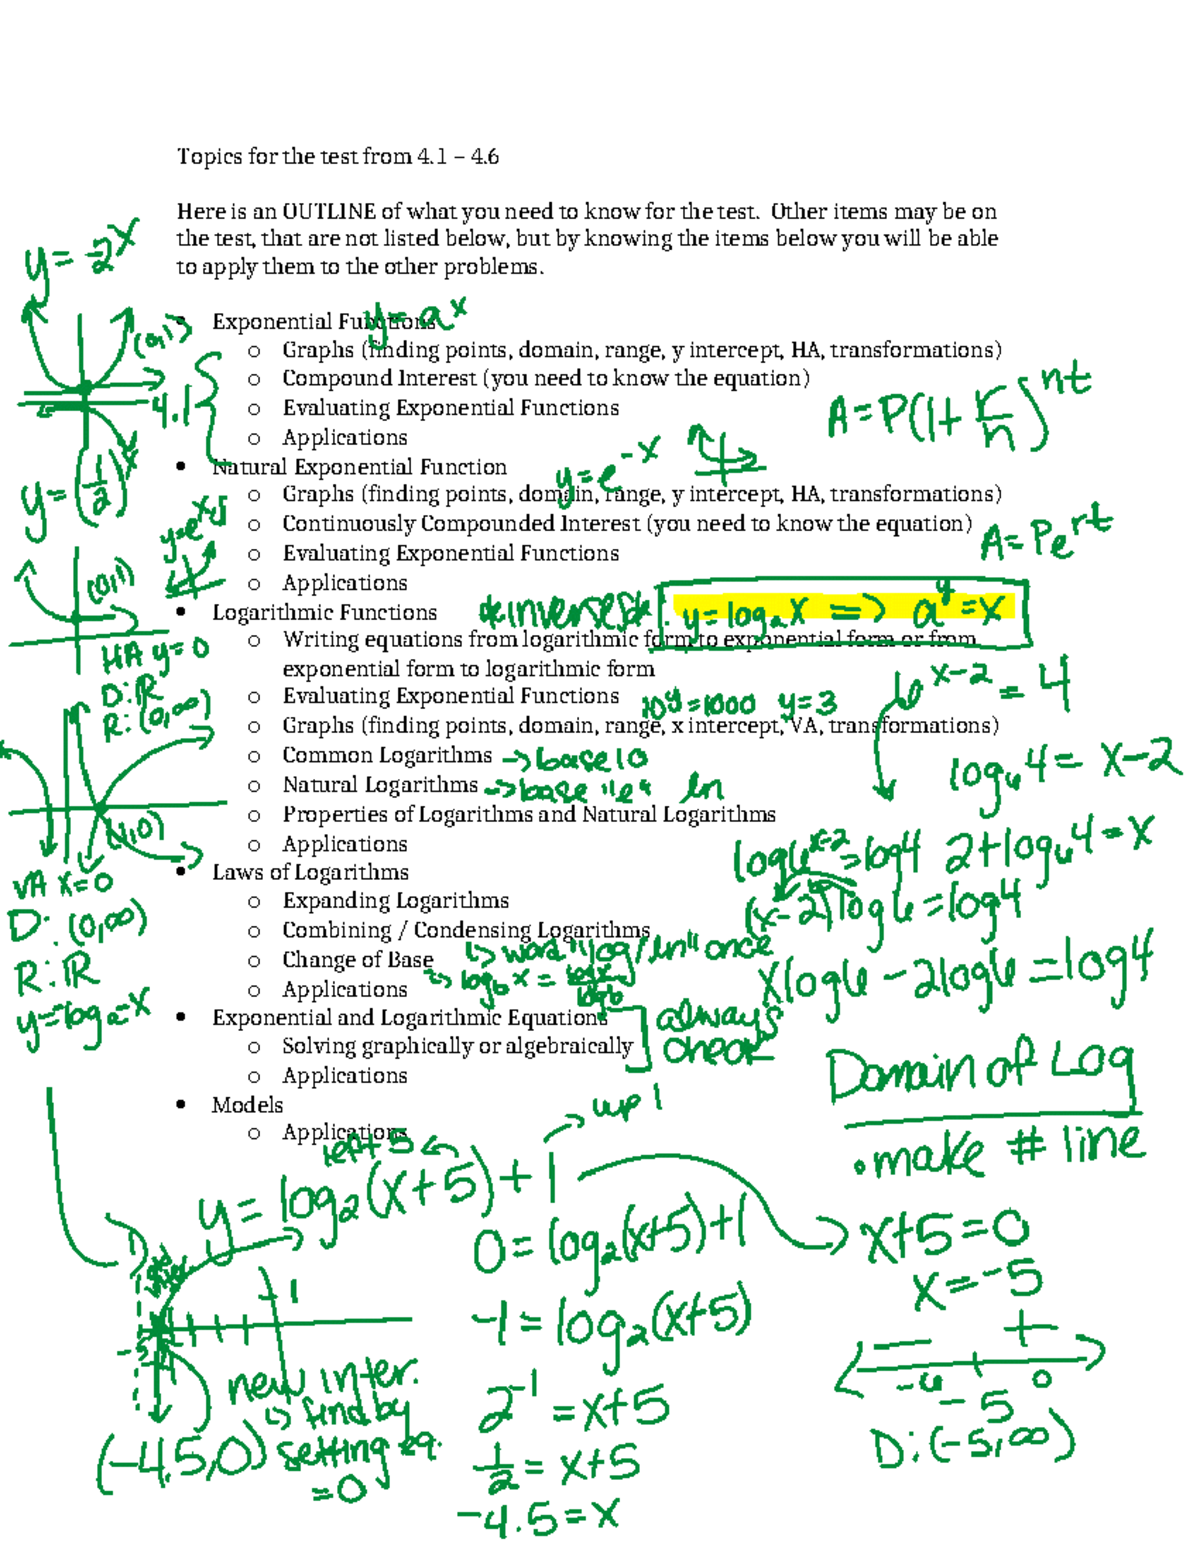 Topics for the test from 4.1 – 4.6
Here is an OUTLINE of what you need to know for the test. Other items may be on
the test, that are not listed below, but by knowing the items below you will be able
to apply them to the other problems.
y = -2^x
• Exponential Functions y = a^x
(0,1)
4.1
o Graphs (finding points, domain, range, y intercept, HA, transformations)
o Compound Interest (you need to know the equation)
A = P(1 + r/n)^nt
o Evaluating Exponential Functions
o Applications
• Natural Exponential Function y = e^-x
y = (1/2)^x
o Graphs (finding points, domain, range, y intercept, HA, transformations)
y = e^x
o Continuously Compounded Interest (you need to know the equation) A = Pe^rt
o Evaluating Exponential Functions
o Applications
(0,1)
• Logarithmic Functions *inverses* y = log₂x => a^y = x
o Writing equations from logarithmic form to exponential form or from
exponential form to logarithmic form
HA y = 0
D: ℝ
R: (0,∞)
6^x-2 = 4
o Evaluating Exponential Functions 10^y = 1000 y = 3
o Graphs (finding points, domain, range, x intercept, VA, transformations)
o Common Logarithms → base 10
log₆4 = x-2
o Natural Logarithms → base "e" ln
o Properties of Logarithms and Natural Logarithms
(1,0)
o Applications
log6^x-2 = log4 2+log₆4 = x
• Laws of Logarithms
VA x = 0
D: (0,∞)
R: ℝ
y = log₂x
o Expanding Logarithms
(x-2)log6 = log4
o Combining / Condensing Logarithms
↳ word "log/ln" once
o Change of Base → log_b x = logx/logb
xlog6 - 2log6 = log4
o Applications
• Exponential and Logarithmic Equations
o Solving graphically or algebraically
always
check
o Applications
Domain of Log
• Models
o Applications
• make # line
left 5 up 1
y = log₂(x+5)+1
0 = log₂(x+5)+1
x+5 = 0
x = -5
-1 = log₂(x+5)
-1
-5
- +
-6 -5 0
D: (-5,∞)
new inter.
↳ find by
setting eq.
= 0
(-4.5,0)
2^-1 = x+5
1/2 = x+5
-4.5 = x